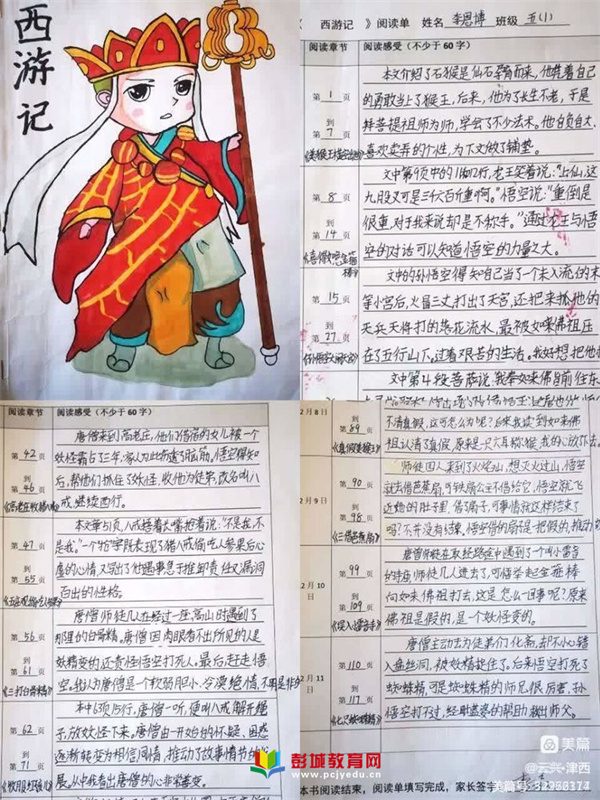 西游记
《 西游记 》阅读单 姓名 李恩博 班级 五(1)
阅读章节 阅读感受(不少于60字)
第 1 页
到
第 7 页
本文介绍了石猴是仙石孕育而来,他凭着自己
的勇敢当上了猴王,后来,他为了长生不老,于是
拜菩提祖师为师,学会了不少法术。他自负自大、
喜欢卖弄的个性,为下文做了铺垫。
第 8 页
到
第 14 页
九股叉可是三千六百斤重啊。"悟空说:"重倒是
很重,对于我来说却是不称手。"通过龙王与悟
空的对话可以知道悟空的力量之大。
第 15 页
到
第 27 页
文中的孙悟空得知自己当了个未入流的末
等小官后,火冒三丈打出了天宫,还把来抓他的
天兵天将打的落花流水,最被如咪佛祖压
在了五行山下,过着艰苦的生活。我好想把他
文中第4段菩萨说,我奉如来佛旨前往东
阅读章节 阅读感受(不少于60字)
第 42 页
到
第 46 页
唐僧来到高老庄,他们借高的女儿被一个
妖怪霸占了三年,家人为此而速了脑筋。悟空得知
后,帮他们抓住了妖怪,收他为徒弟,改名叫八
戒,继续西行。
第 47 页
到
第 55 页
是我。"一个"抢"字既表现了猪八戒偷吃人参果后心
虚的心情又写出了他遇事急于推卸责任又漏洞
百出的性格。
第 56 页
到
第 61 页
《三打白骨精》
唐僧师徒几人在经过一座高山时遇到了
那里的白骨精。唐僧因肉眼看不出所见的人是
妖精变的还责怪悟空打死人。最后赶走悟
空。我认为唐僧是一个软弱胆小、冷漠绝情、不明是非的
第 62 页
到
第 71 页
本中6页15行,唐僧一听,便叫八戒解开绳
子,放妖怪下来,唐僧由一开始的怀疑、困惑
逐渐转变为相信同情,推动了故事情节的发
展。从中我看出唐僧的心非常善变。
2月8日
第 89 页
《真假美猴王》
不清真假,这可怎么办呢?后来我读到如来佛
祖认清了真假,原来是一只六耳猕猴,我的心放下去。
2月9日
第 90 页
到
第 98 页
师徒四人来到了火焰山,想灭火过山,悟空
就去借芭蕉扇,可铁扇公主不借给它,悟空就飞
近她的肚子里,借了扇子,可事情就这样结束了
吗?不并没有结束,悟空借的扇子是把假的,推动了
2月10日
第 99 页
到
第 109 页
唐僧师徒在取经路途中遇到了一个叫小雷音
的寺庙师徒几人进去了,可悟空举起金箍棒
向如来佛祖打去,这是怎么一回事呢?原来
佛祖是假的,是一个妖怪变的。
2月11日
第 110 页
到
第 117 页
唐僧主动去为徒弟们化斋,却不小心踏
入盘丝洞,被妖精捉住了。后来悟空打死了
蜘蛛精,可是蜘蛛精的师兄很厉害,孙
悟空打不过,经毗蓝婆的帮助救出师父。
本书阅读结束,阅读单填写完成,家长签字
彭城教育网
www.pcjyedu.cn
美篇
@云兴·津西
美篇号:52968374